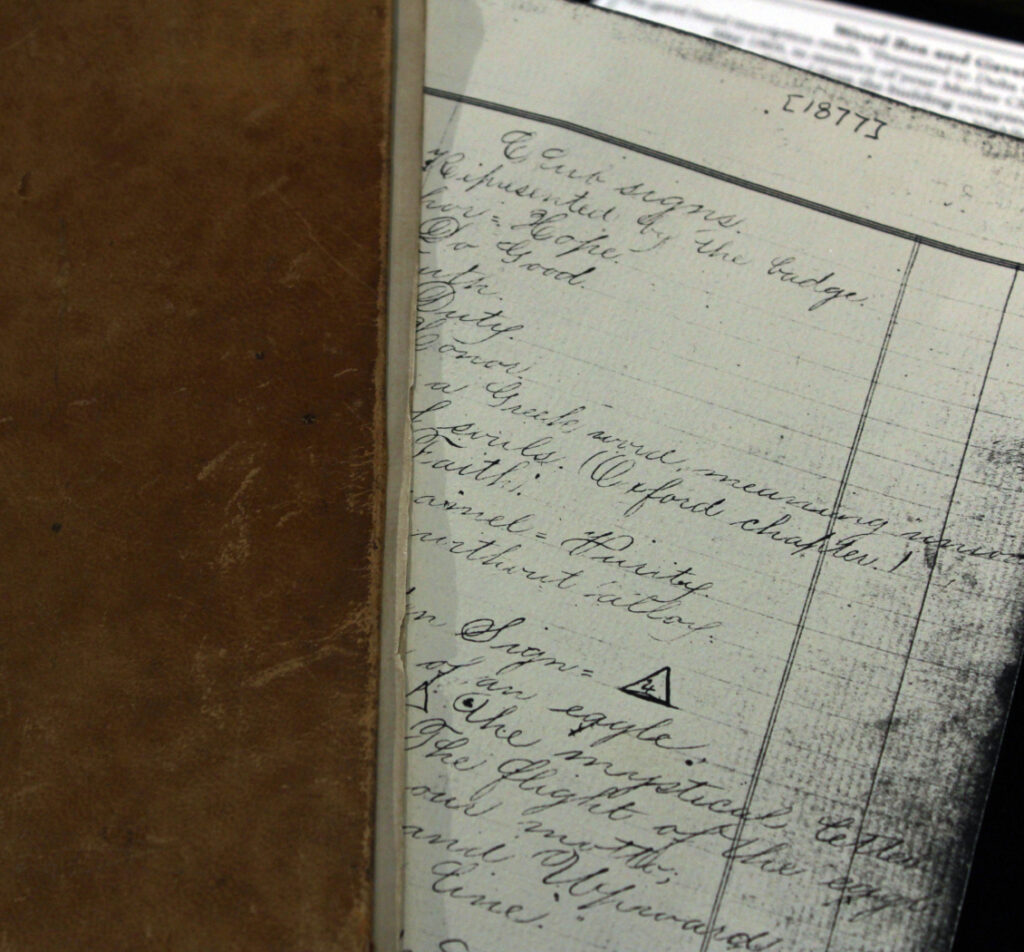 [1877]
Club signs.
Represented by the badge.
hor = Hope.
Do Good.
uth.
Duty.
Honor.
a Greek word, meaning union
f souls. (Oxford chapter.)
Faith.
amel = Purity
without alloy.
n Sign =
of an eagle.
The mystical letter
The flight of the eagle
our motto;
and Upwards
Line.